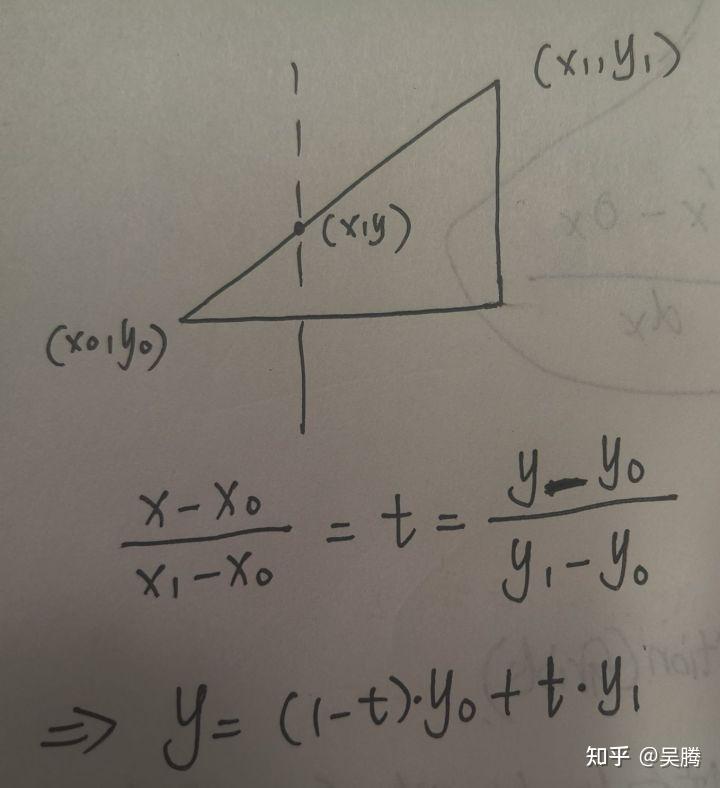 (x1,y1)
(x,y)
(x0,y0)
x-x0/x1-x0 = t = y-y0/y1-y0
⇒ y = (1-t)·y0 + t·y1
知乎 @吴腾